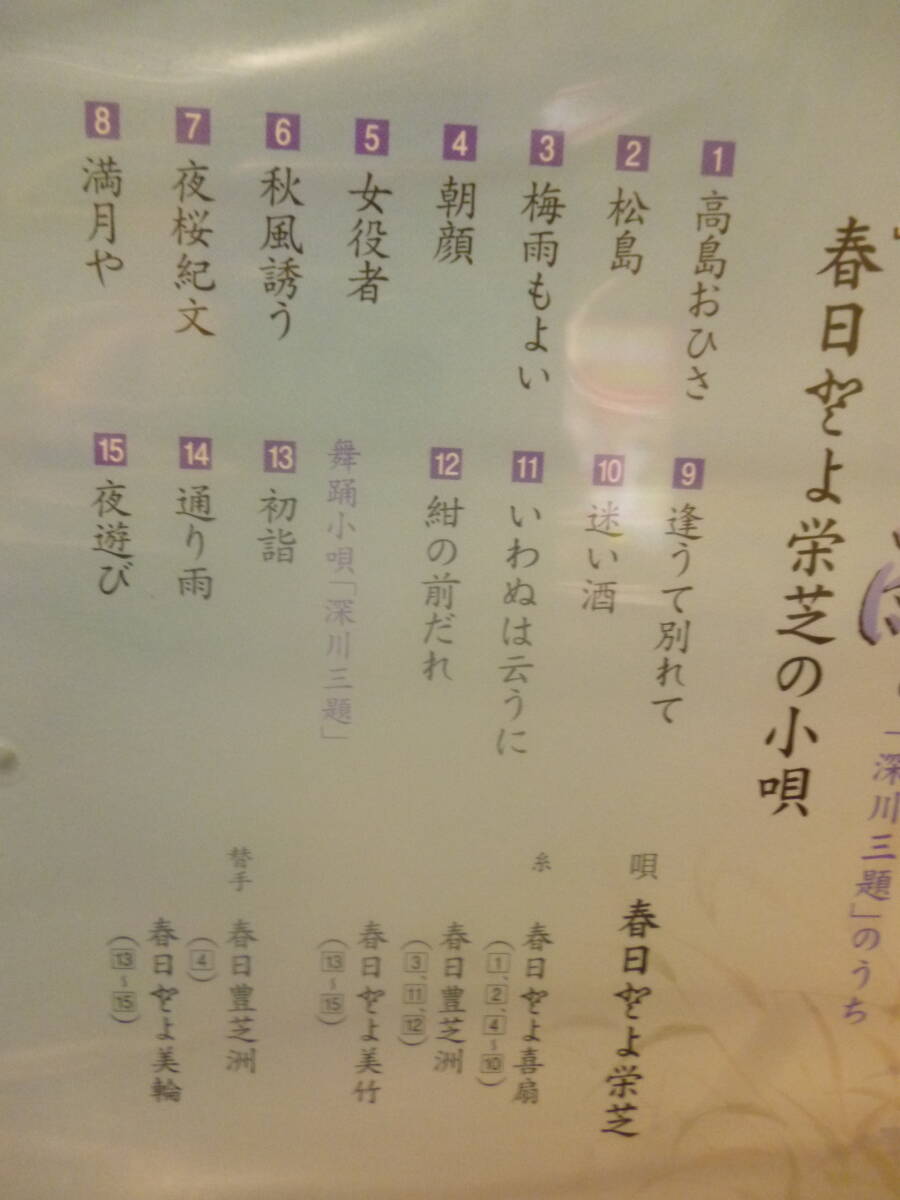 「深川三題」のうち
春日とよ栄芝の小唄
1 高島おひさ
2 松島
3 梅雨もよい
4 朝顔
5 女役者
6 秋風誘う
7 夜桜紀文
8 満月や
9 逢うて別れて
10 迷い酒
11 いわぬは云うに
12 紺の前だれ
舞踊小唄「深川三題」
13 初詣
14 通り雨
15 夜遊び
唄 春日とよ栄芝
糸 春日とよ喜扇
(1、2、4~10)
春日豊芝洲
(3、11、12)
春日とよ美竹
(13~15)
替手 春日豊芝洲
(4)
春日とよ美輪
(13~15)